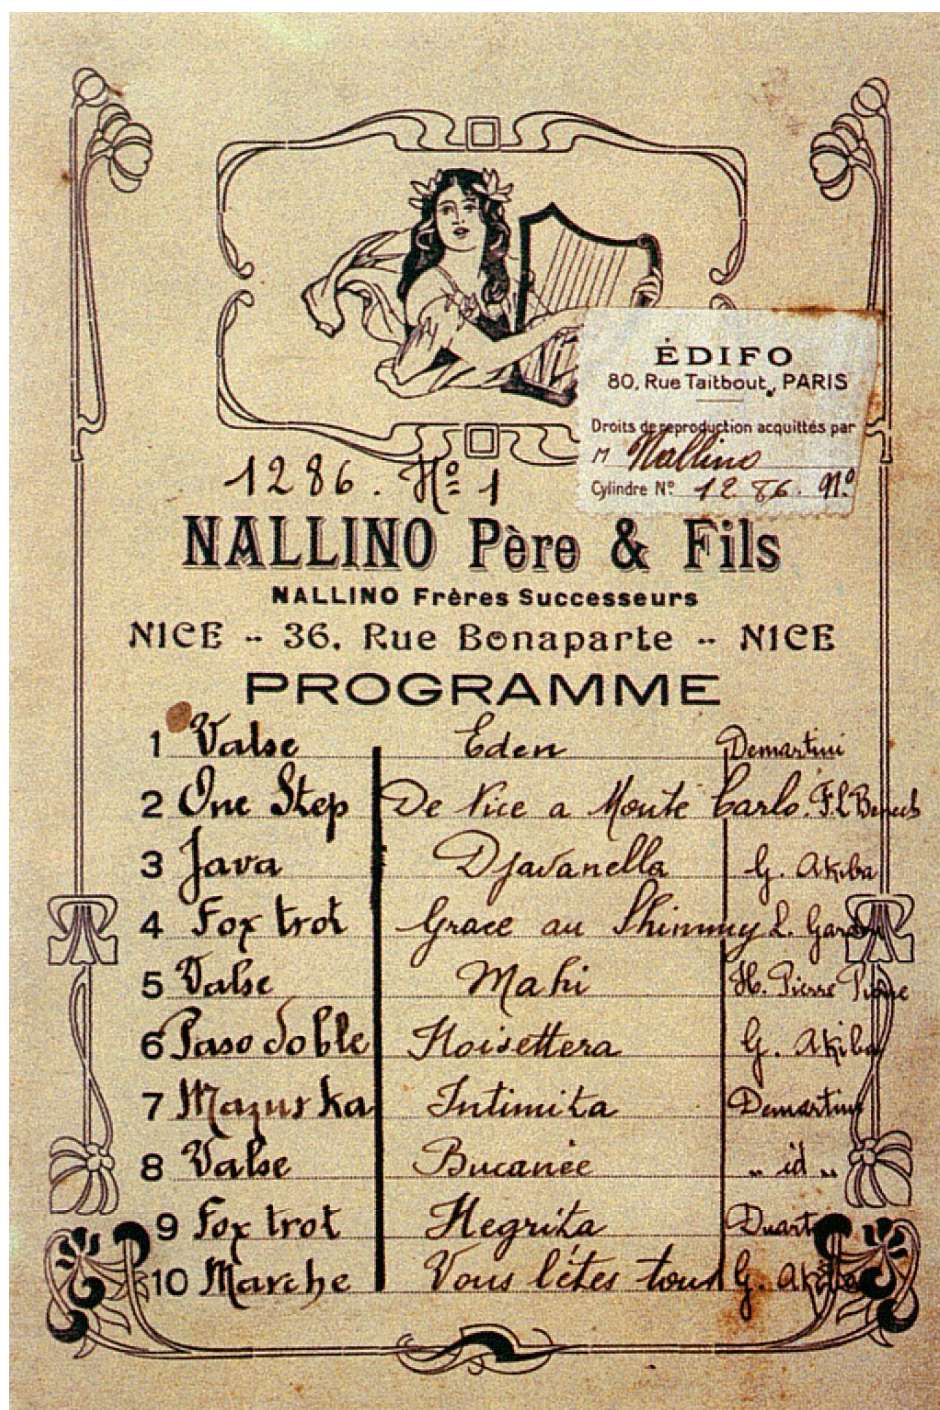 ÉDIFO
80, Rue Taitbout, PARIS
Droits de reproduction acquittés par
M Nallino
Cylindre Nº 12.86. Nº
1286. Nº 1
NALLINO Père & Fils
NALLINO Frères Successeurs
NICE -- 36, Rue Bonaparte -- NICE
PROGRAMME
1 Valse Eden Demartini
2 One Step De Nice a Monte Carlo. F.L Benech
3 Java Djavanella G. Akiba
4 Fox trot Grace au Shimmy L. Gardoni
5 Valse Mahi H. Pierre Pierre
6 Paso doble Noisettera G. Akiba
7 Mazurka Intimita Demartini
8 Valse Bucanée " id "
9 Fox trot Negrita
10 Marche Vous l'êtes tous G. Akiba